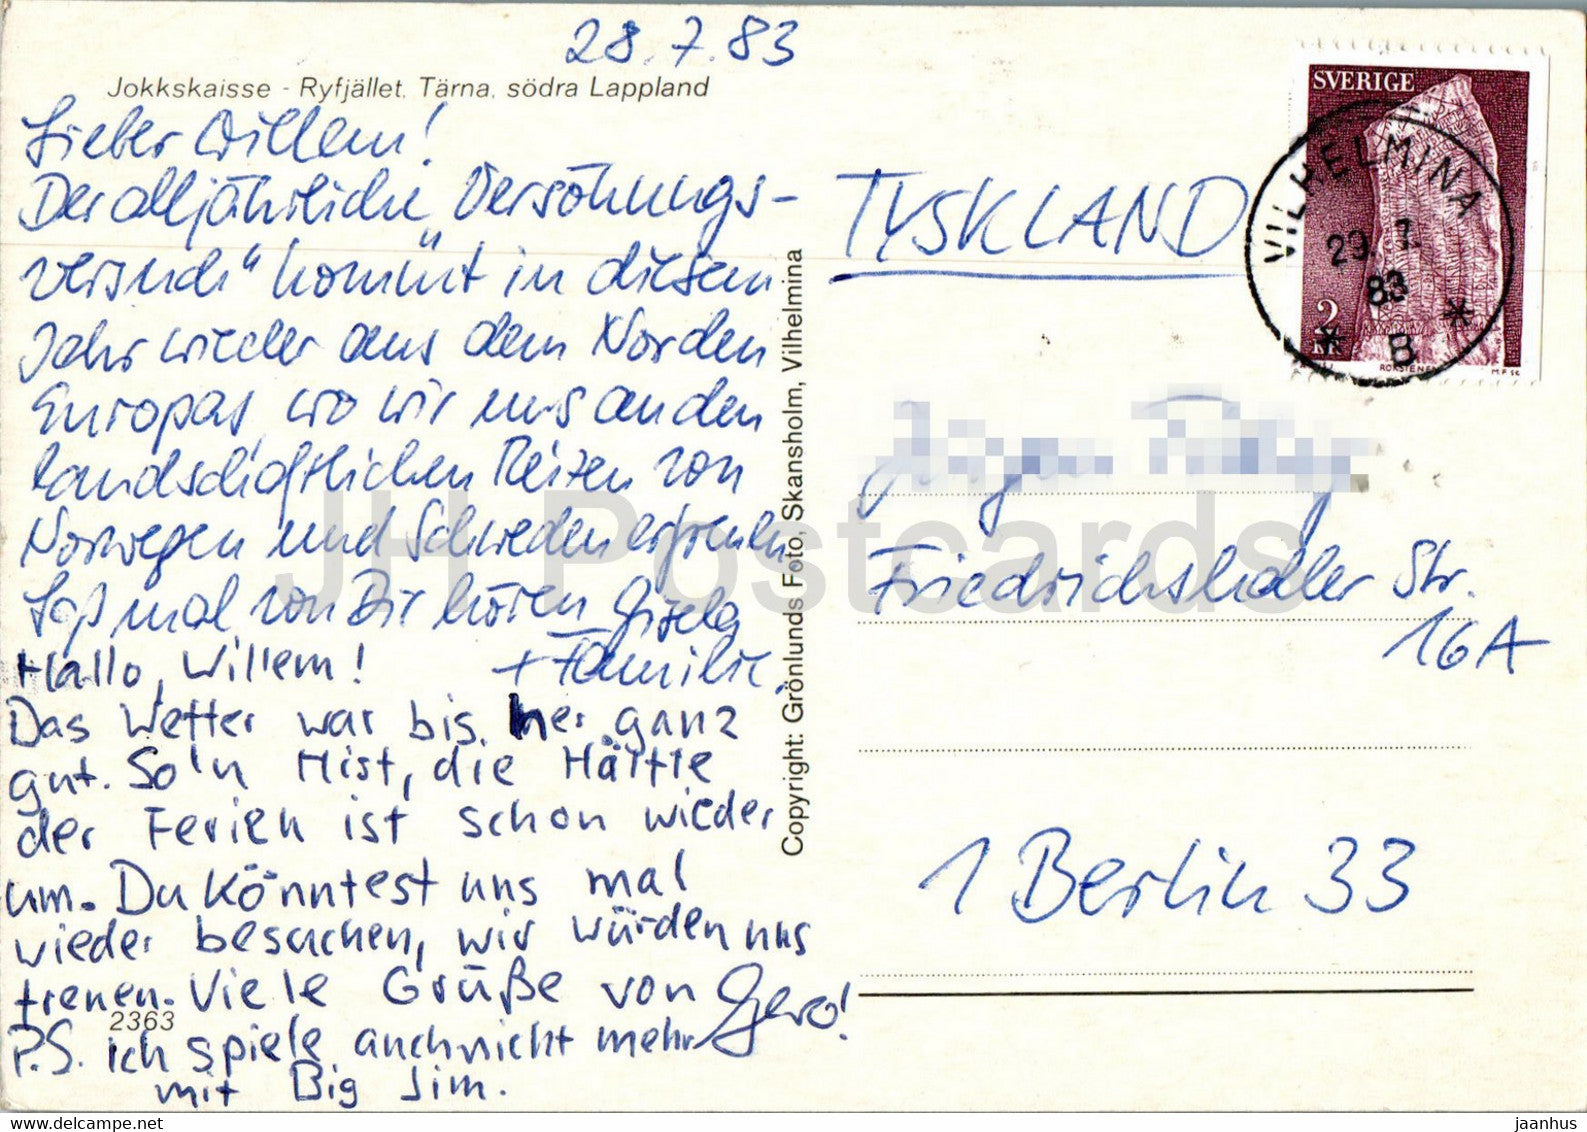 28.7.83
Jokkskaisse - Ryfjället, Tärna, södra Lappland
Lieber Willem!
Der alljährliche „Versöhnungs-
versuch“ kommt in diesem
Jahr wieder aus dem Norden
Europas, wo wir uns an den
landschaftlichen Reizen von
Norwegen und Schweden erfreuen
Laß mal von Dir hören Gisela
+ Familie.
Hallo, Willem!
Das Wetter war bis her ganz
gut. So'n Mist, die Hälfte
der Ferien ist schon wieder
um. Du könntest uns mal
wieder besuchen, wir würden uns
freuen. Viele Grüße von Gero!
P.S. ich spiele auch nicht mehr
mit Big Jim.
2363
Copyright: Grönlunds Foto, Skansholm, Vilhelmina
TYSKLAND
SVERIGE
2
KR
ROKSTENEN
VILHELMINA
29. 7.
83
* B *
Friedrichshaller Str.
16A
1 Berlin 33
JH Postcards
www.delcampe.net
jaanhus